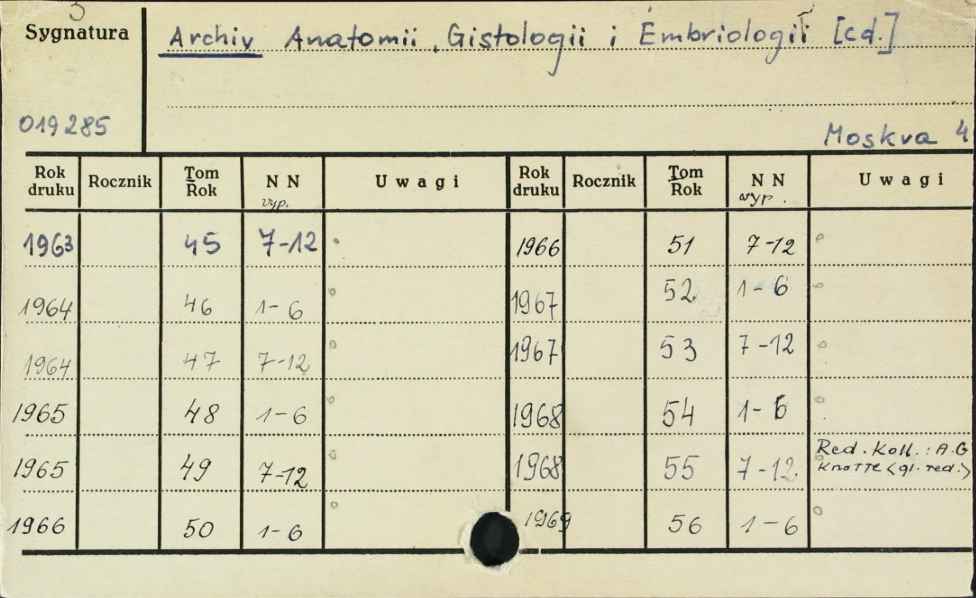 3
Sygnatura
Archiv Anatomii, Gistologii i Embriologii [cd.]
019285
Moskva 4
Rok druku Rocznik Tom Rok NN U w a g i Rok druku Rocznik Tom Rok NN U w a g i
vyp. wyp.
1963 45 7-12 1966 51 7-12
1964 46 1-6 1967 52 1-6
1964 47 7-12 1967 53 7-12
1965 48 1-6 1968 54 1-6
1965 49 7-12 1968 55 7-12 Red. Koll.: A.G
Knorre <gl. red.>
1966 50 1-6 1969 56 1-6